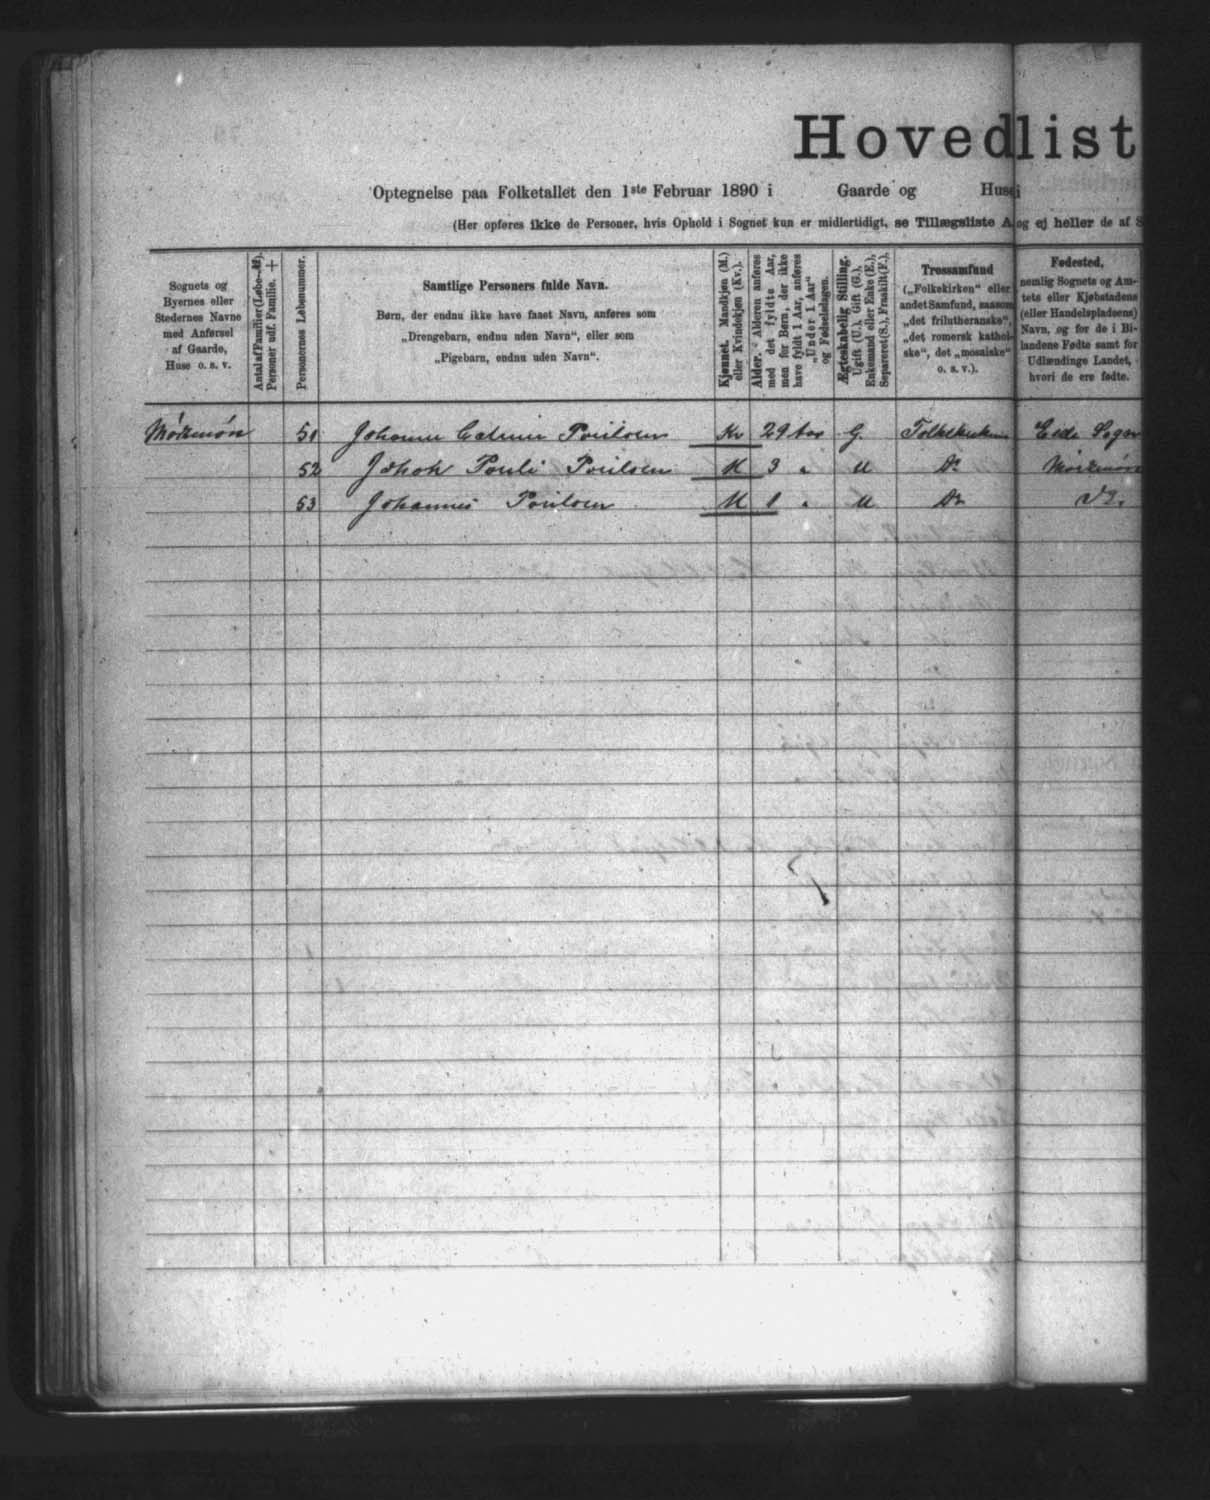 Hovedlist
Optegnelse paa Folketallet den 1ste Februar 1890 i Gaarde og Huse i
(Her opføres ikke de Personer, hvis Ophold i Sognet kun er midlertidigt, se Tillægsliste A og ej heller de af S
Sognets og
Byernes eller
Stedernes Navne
med Anførsel
af Gaarde,
Huse o. s. v.
Antal af Familier (Løbe-№).
Personer udf. Familie. +
Personernes Løbenummer.
Samtlige Personers fulde Navn.
Børn, der endnu ikke have faaet Navn, anføres som
„Drengebarn, endnu uden Navn“, eller som
„Pigebarn, endnu uden Navn“.
Kjønnet. Mandkjøn (M.)
eller Kvindekjøn (Kv.).
Alder. Alderen anføres
med det fyldte Aar,
men for Børn, der ikke
have fyldt 1 Aar, anføres
„Under 1 Aar“
og Fødselsdagen.
Ægteskabelig Stilling.
Ugift (U.), Gift (G.),
Enkemand eller Enke (E.),
Separeret (S.), Fraskilt (F.).
Trossamfund
(„Folkekirken“ eller
andet Samfund, saasom
„det frilutheranske“,
„det romersk kathol-
ske“, det „mosaiske“
o. s. v.).
Fødested,
nemlig Sognets og Am-
tets eller Kjøbstadens
(eller Handelspladsens)
Navn, og for de i Bi-
landene Fødte samt for
Udlændinge Landet,
hvori de ere fødte.
51 Poulsen Kv 29 Aar G. Folkekirken Eide Sogn
52 Poulsen M 3 „ U Do
53 Johannes Poulsen M 1 „ U Do Do.